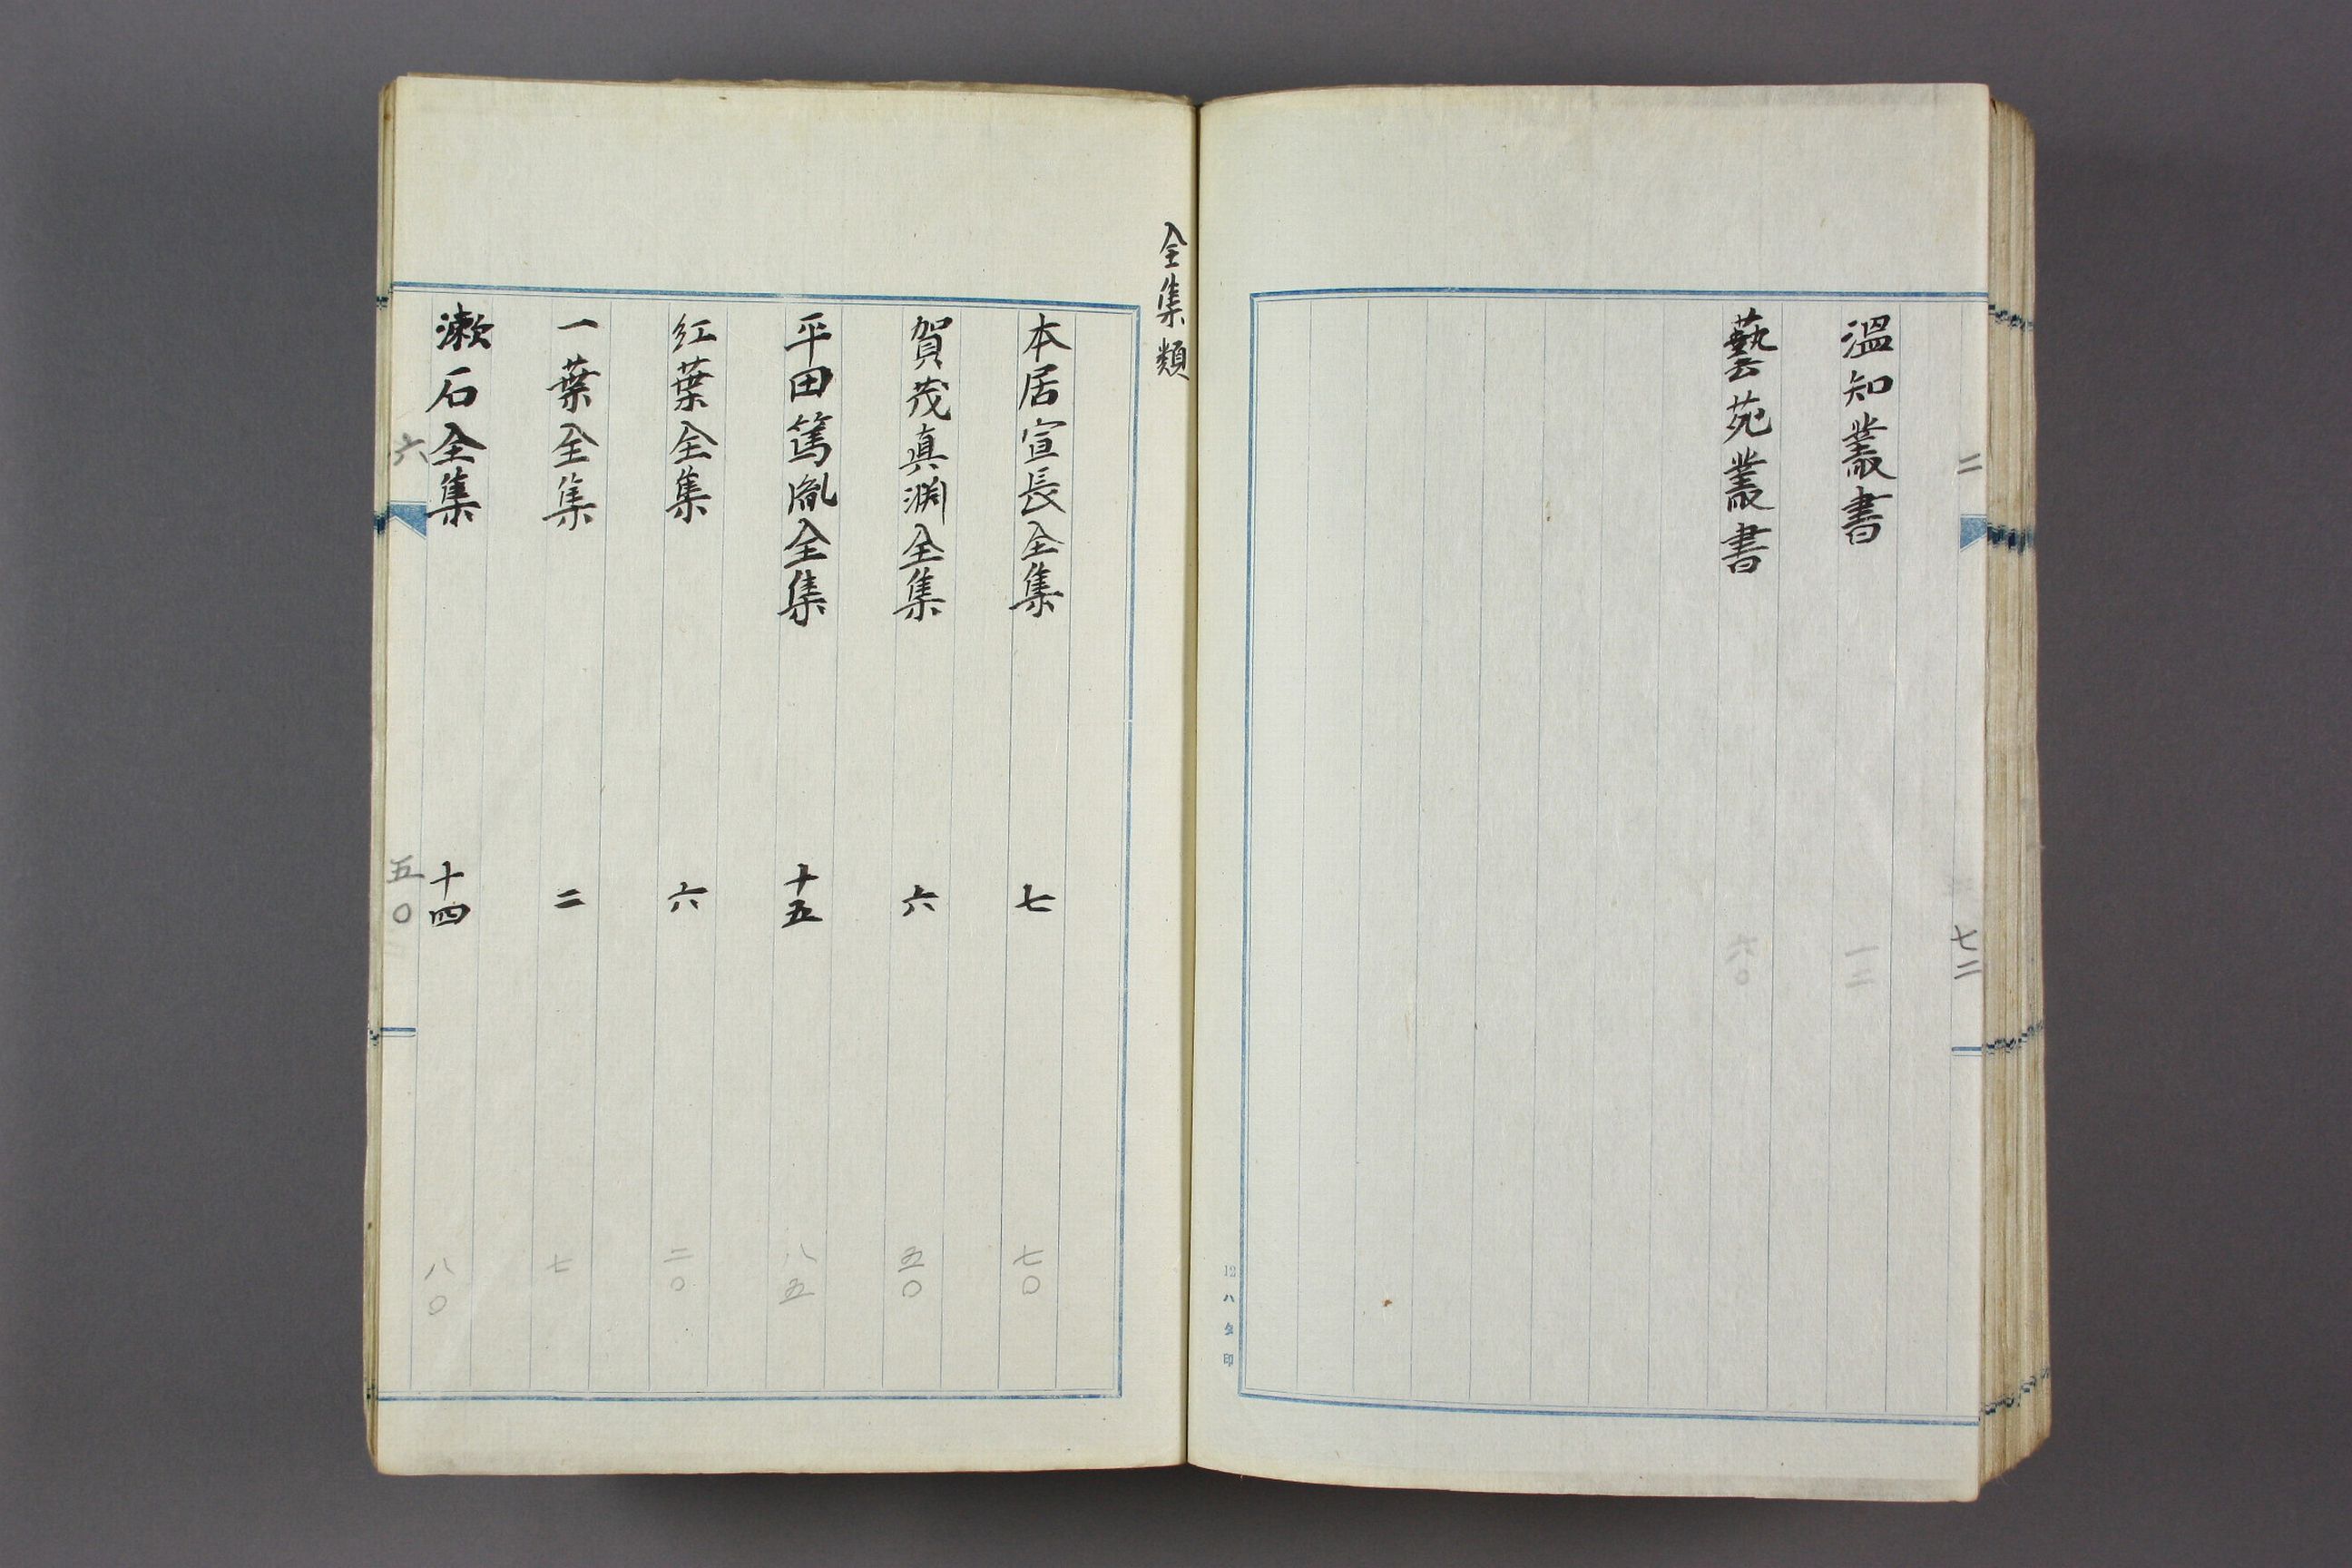 二 七二
溫知叢書 一二
藝苑叢書 六〇
12ハタ印
全集類
本居宣長全集 七 七〇
賀茂真淵全集 六 五〇
平田篤胤全集 十五 八五
紅葉全集 六 二〇
一葉全集 二 七
漱石全集 十四 八〇
六 五〇